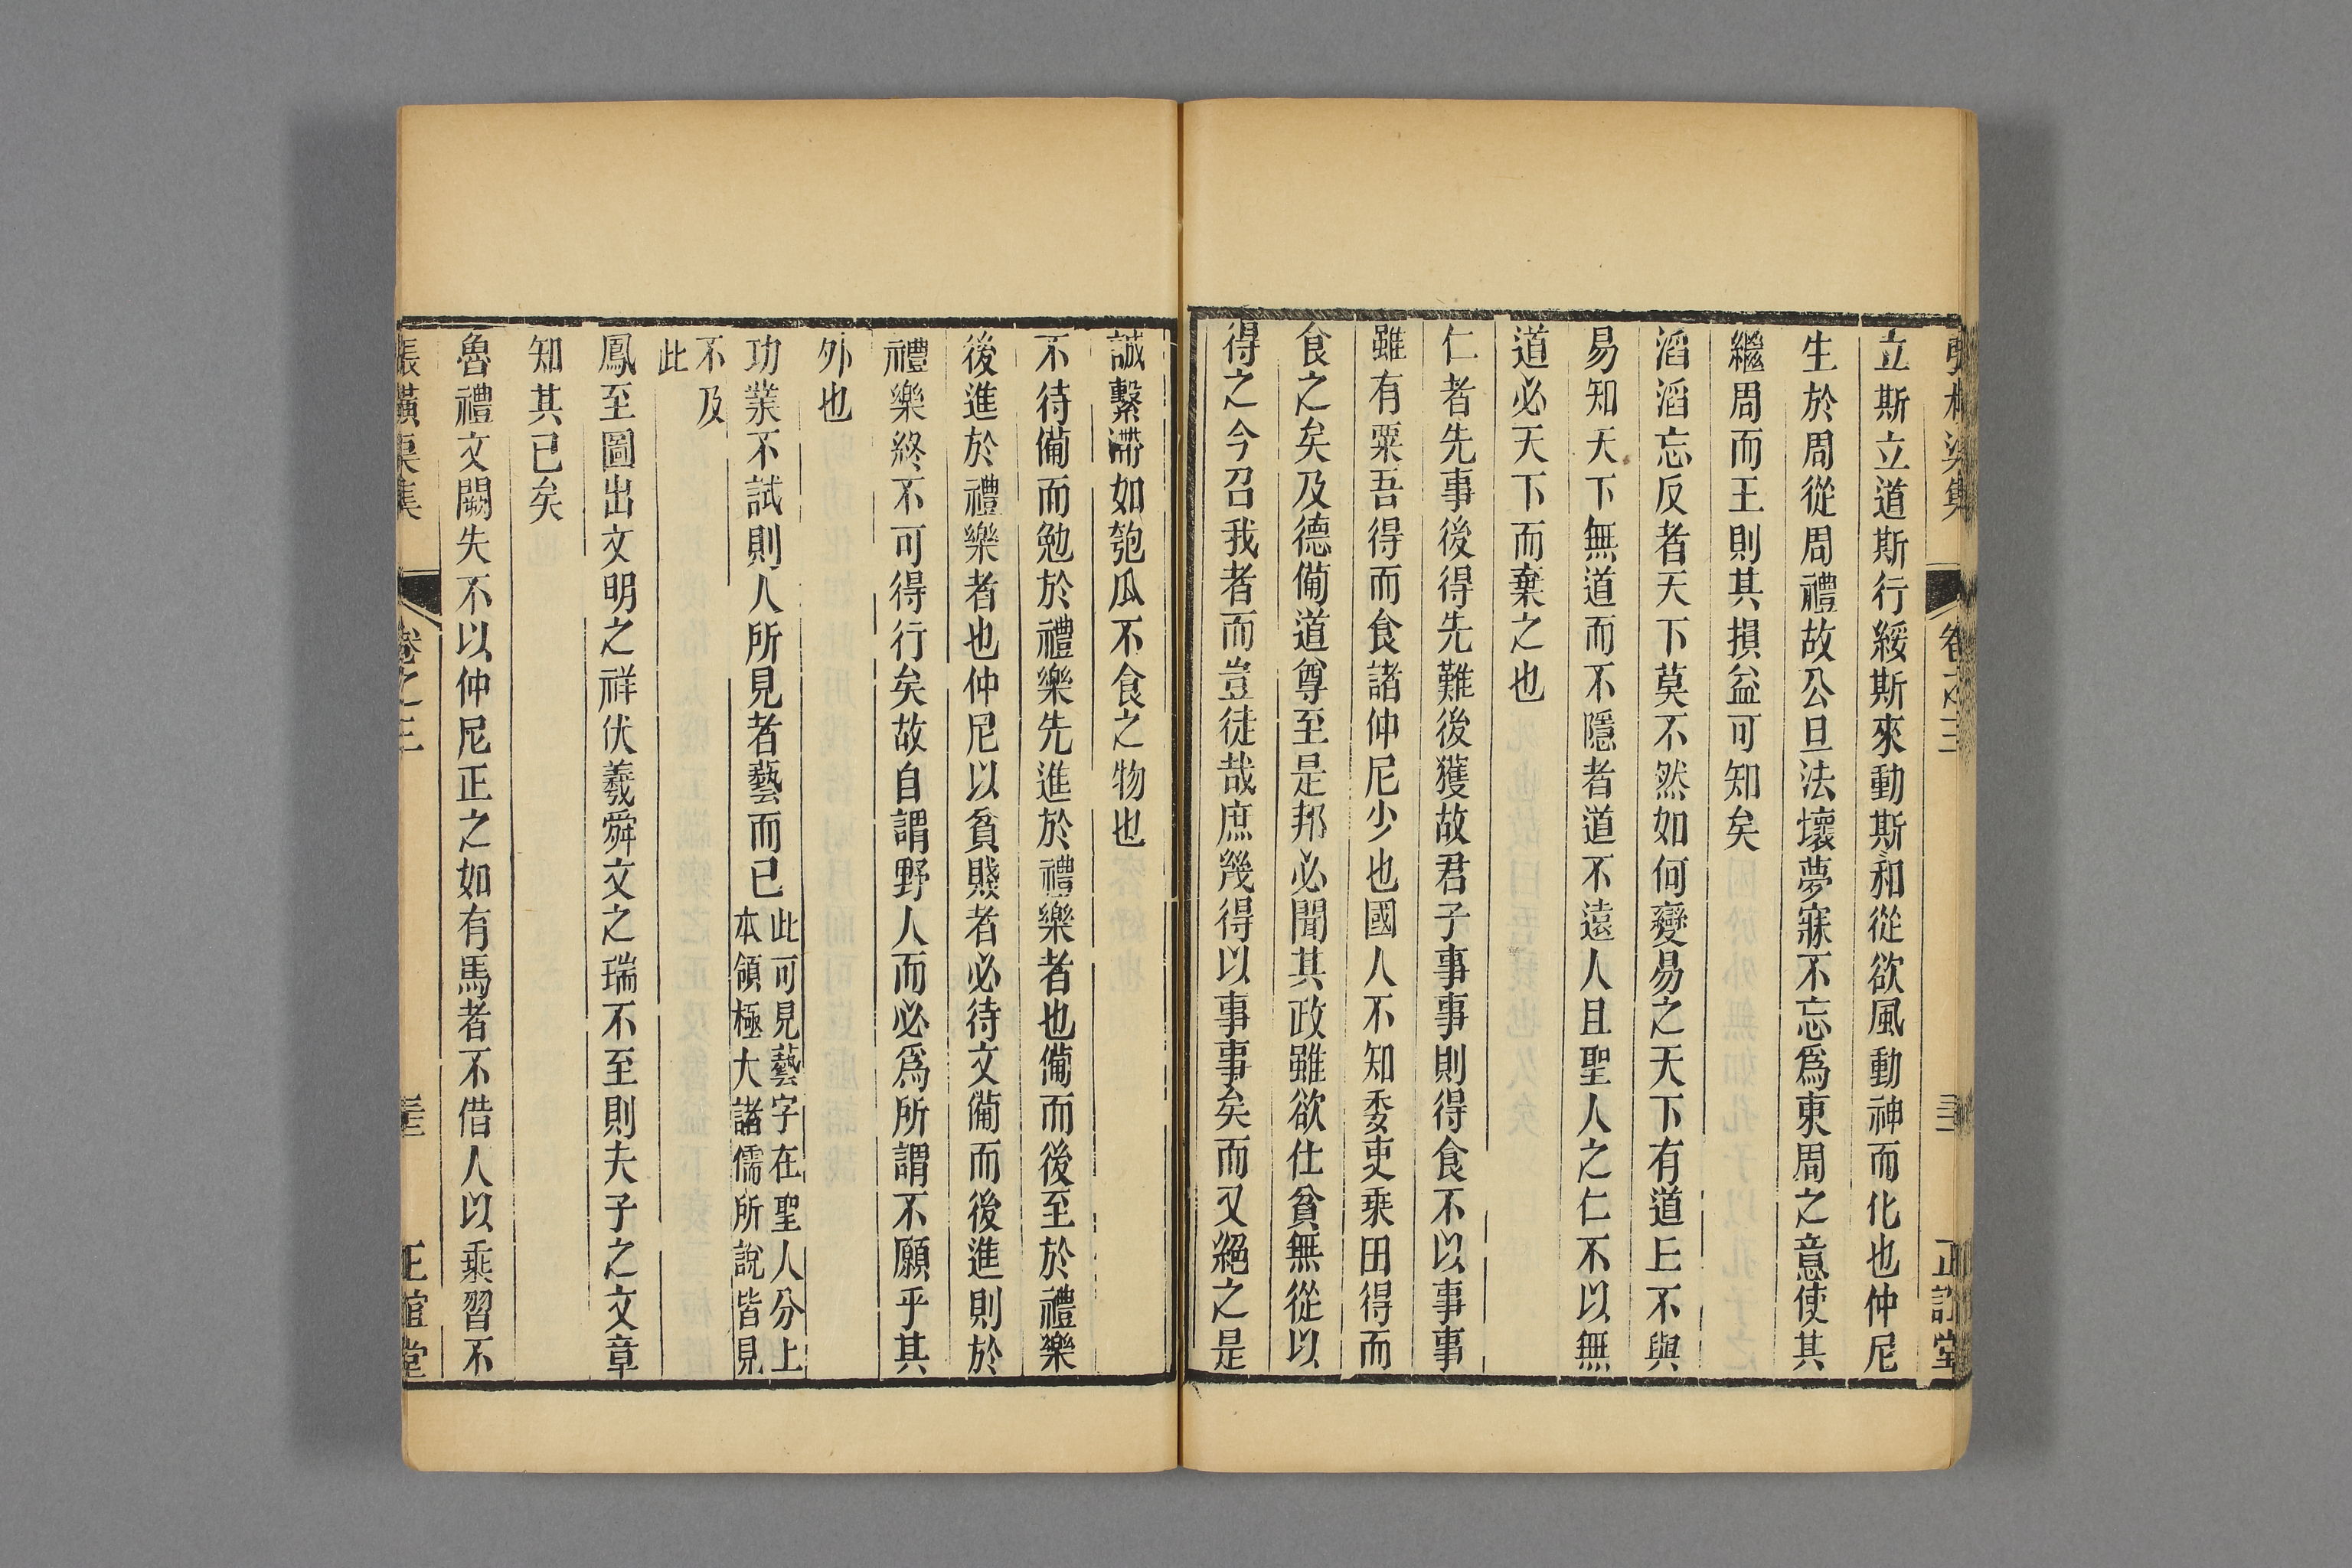 張橫渠集 卷之三 正誼堂
立斯立道斯行綏斯來動斯和從欲風動神而化也仲尼
生於周從周禮故公旦法壞夢寐不忘爲東周之意使其
繼周而王則其損益可知矣
滔滔忘反者天下莫不然如何變易之天下有道丘不與
易知天下無道而不隱者道不遠人且聖人之仁不以無
道必天下而棄之也
仁者先事後得先難後獲故君子事事則得食不以事事
雖有粟吾得而食諸仲尼少也國人不知委吏乘田得而
食之矣及德備道尊至是邦必聞其政雖欲仕貧無從以
得之今召我者而豈徒哉庶幾得以事事矣而又絕之是
誠繫滯如匏瓜不食之物也
不待備而勉於禮樂先進於禮樂者也備而後至於禮樂
後進於禮樂者也仲尼以貧賤者必待文備而後進則於
禮樂終不可得行矣故自謂野人而必爲所謂不願乎其
外也
功業不試則人所見者藝而已此可見藝字在聖人分上
本領極大諸儒所說皆見
不及
此
鳳至圖出文明之祥伏羲舜文之瑞不至則夫子之文章
知其已矣
魯禮文闕失不以仲尼正之如有馬者不借人以乘習不
張橫渠集 卷之三 正誼堂